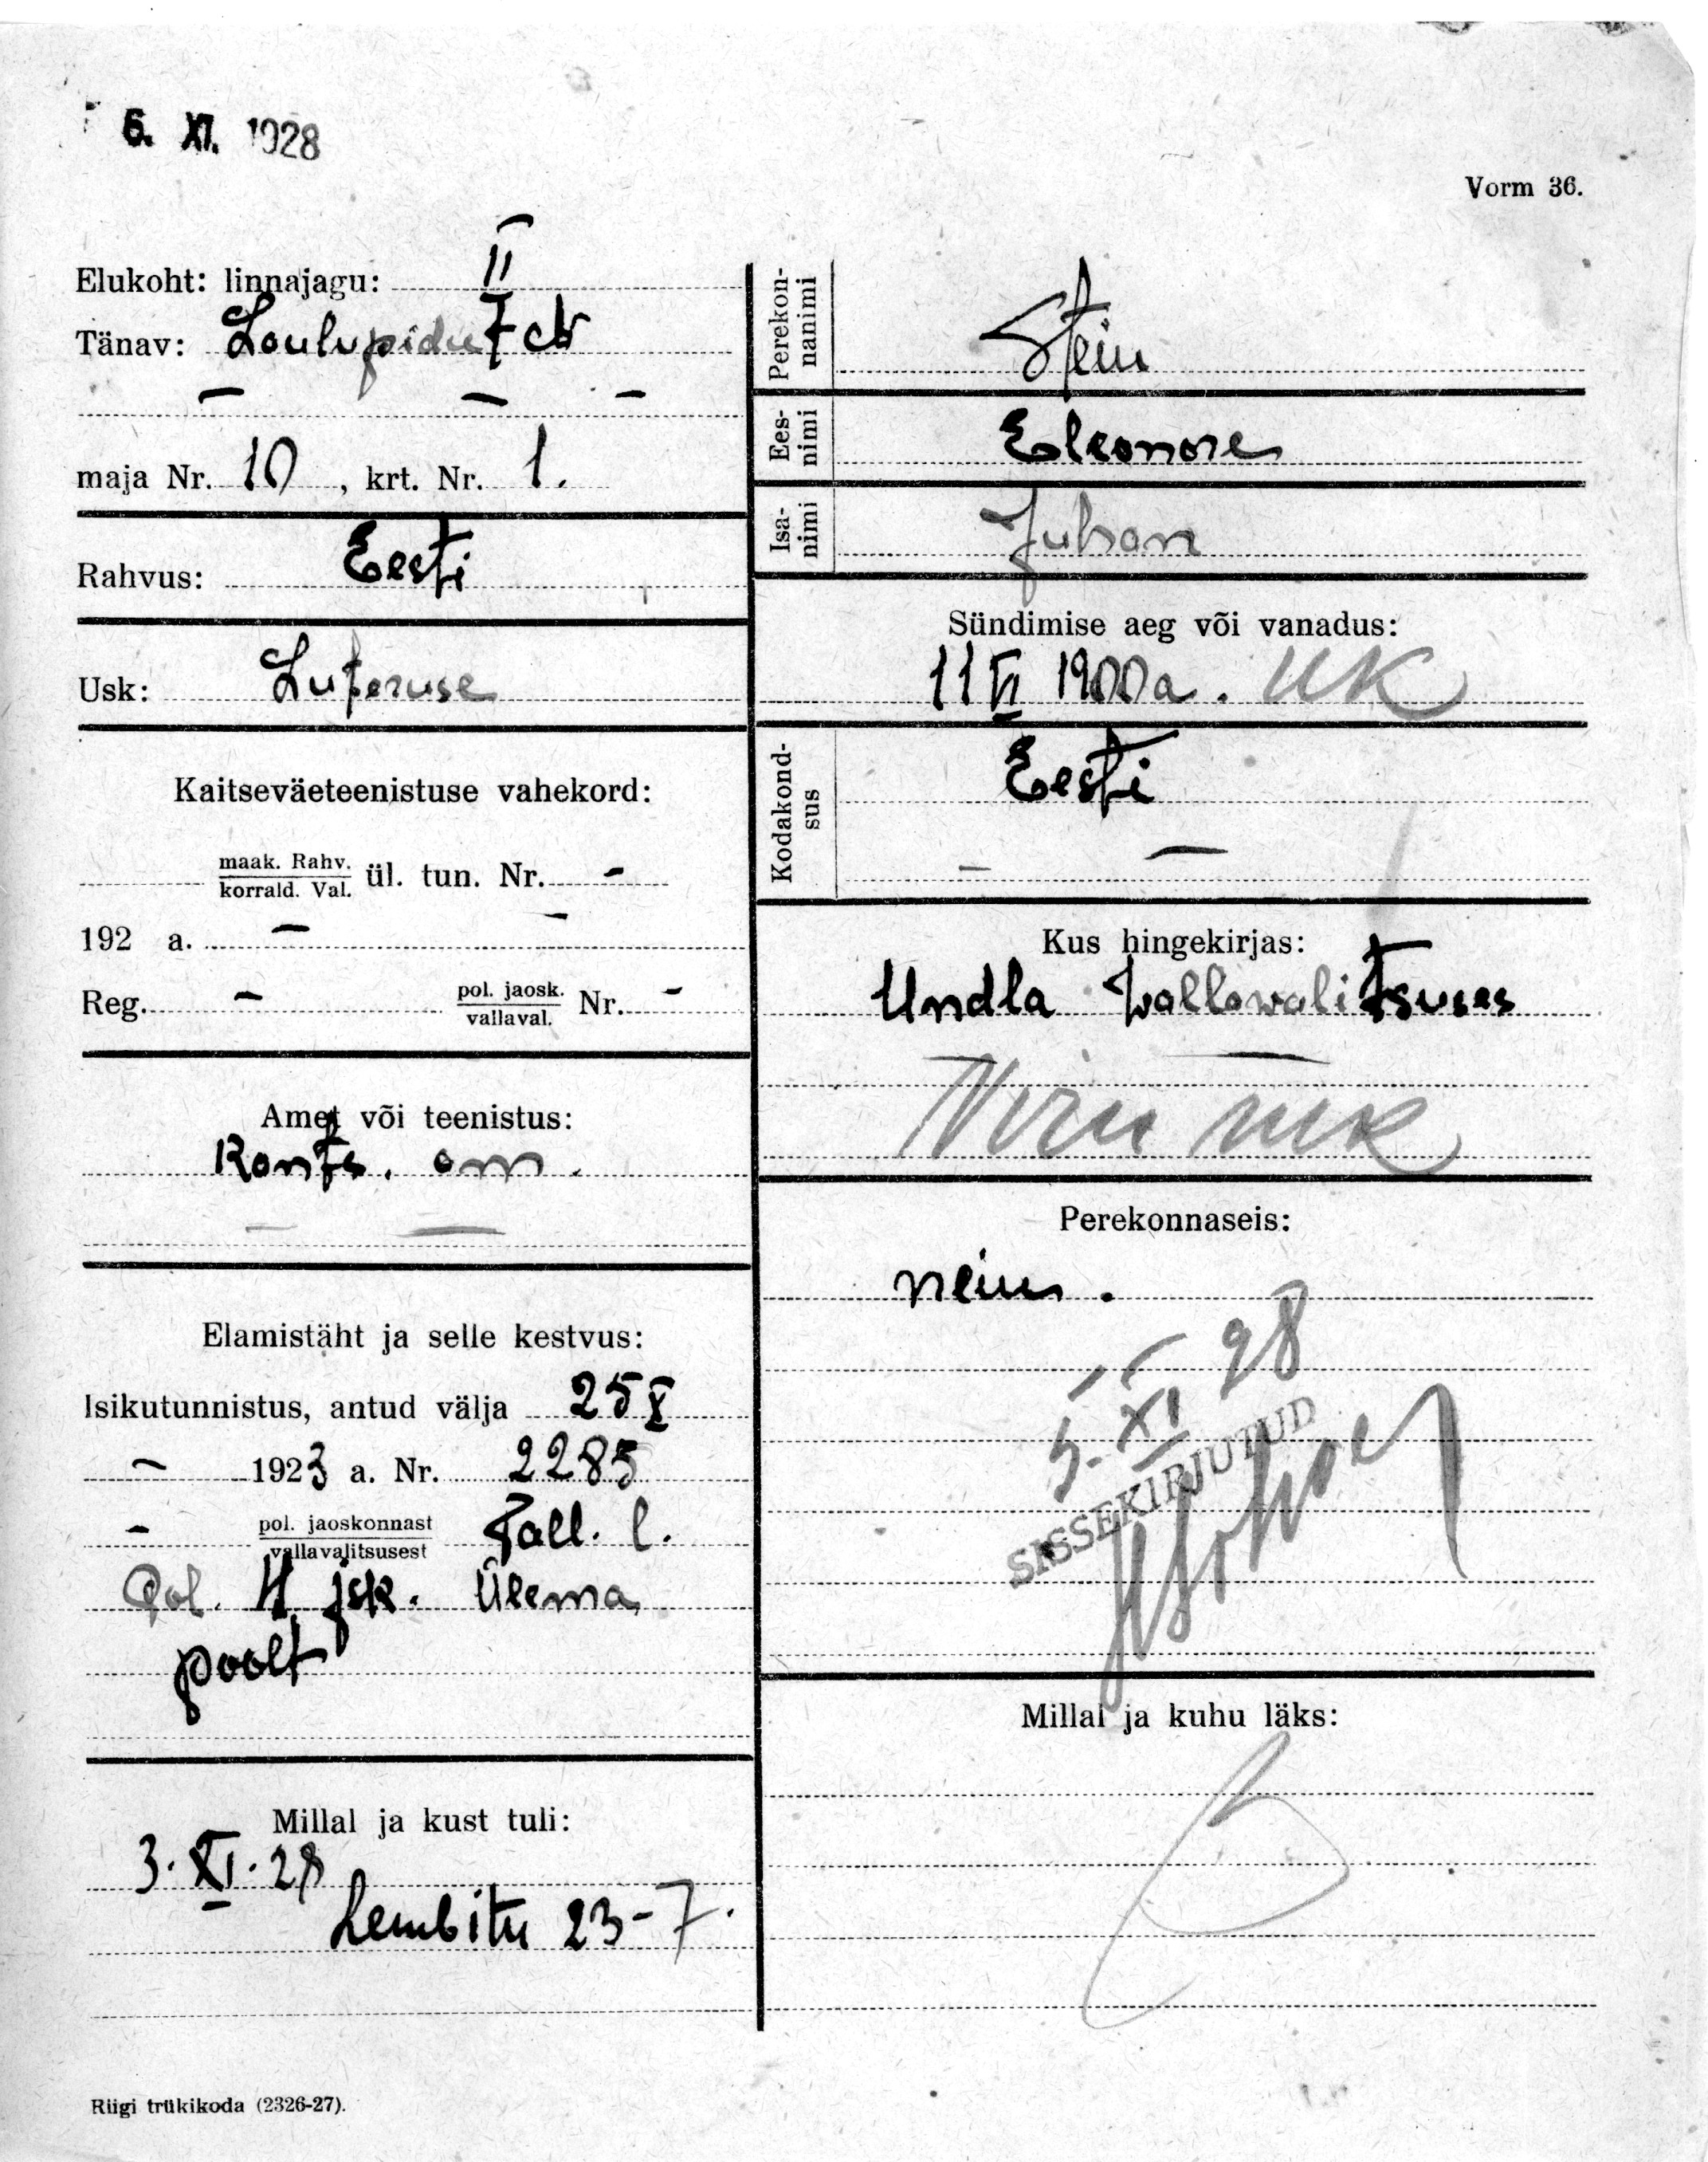 6. XI. 1928
Vorm 36.
Elukoht: linnajagu: II
Tänav: Laulupidu
maja Nr. 10, krt. Nr. 1.
Rahvus: Eesti
Usk: Luteruse
Kaitseväeteenistuse vahekord:
maak. Rahv.
korrald. Val. ül. tun. Nr. -
192 a. - -
Reg. - pol. jaosk.
vallaval. Nr. -
Amet või teenistus:
Konts. am.
- -
Elamistäht ja selle kestvus:
Isikutunnistus, antud välja 25 X
- 1923 a. Nr. 2285
- pol. jaoskonnast
vallavalitsusest Tall. l.
Pol. jsk. Ülema
poolt
Millal ja kust tuli:
3. XI. 28
Lembitu 23-7.
Riigi trükikoda (2326-27).
Perekon-
nanimi
Stein
Ees-
nimi
Eleonore
Isa-
nimi
Juhan
Sündimise aeg või vanadus:
11 VI 1900 a. UK
Kodakond-
sus
Eesti
- -
Kus hingekirjas:
Undla wallawalitsuses
Viru mk
Perekonnaseis:
neiu.
5. XI 28
SISSEKIRJUTUD
Millal ja kuhu läks: